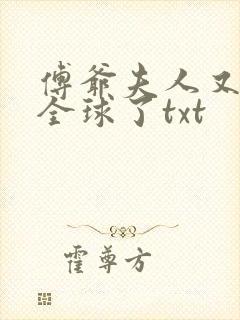 傅爷夫人又
全球了txt
霍尊方